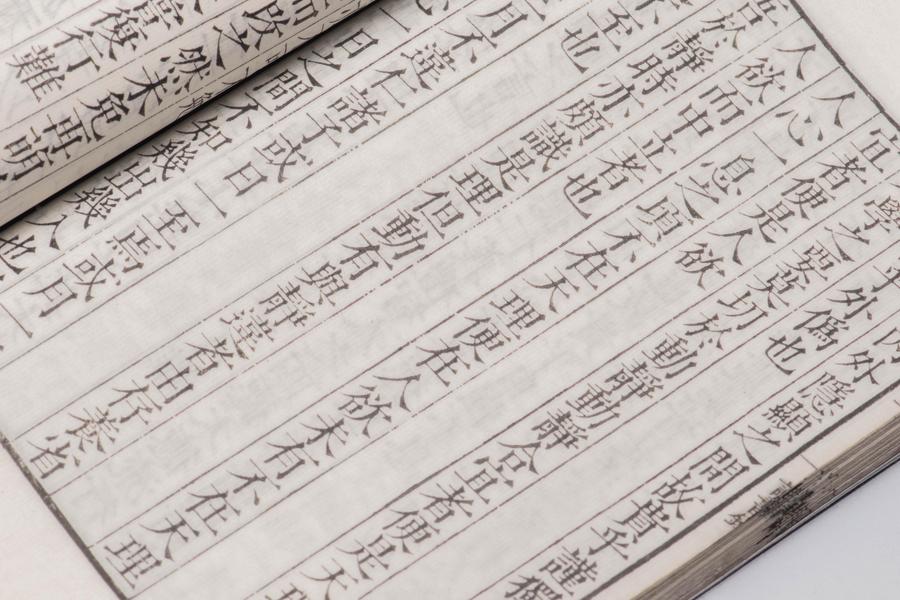 內外隱顯之間故貴乎謹獨
外偽也
學之要莫切於動靜動靜合宜者便是天理
宜者便是人欲
人心一息之頃不在天理便在人欲未有不在天理
人欲而中立者也
吾於靜時亦頗識是理但動有與靜違者由存養省
不至也
月不違仁諸子或日一至焉或月一
日之間不知幾出幾入也
而改之然未免再萌
當復行難